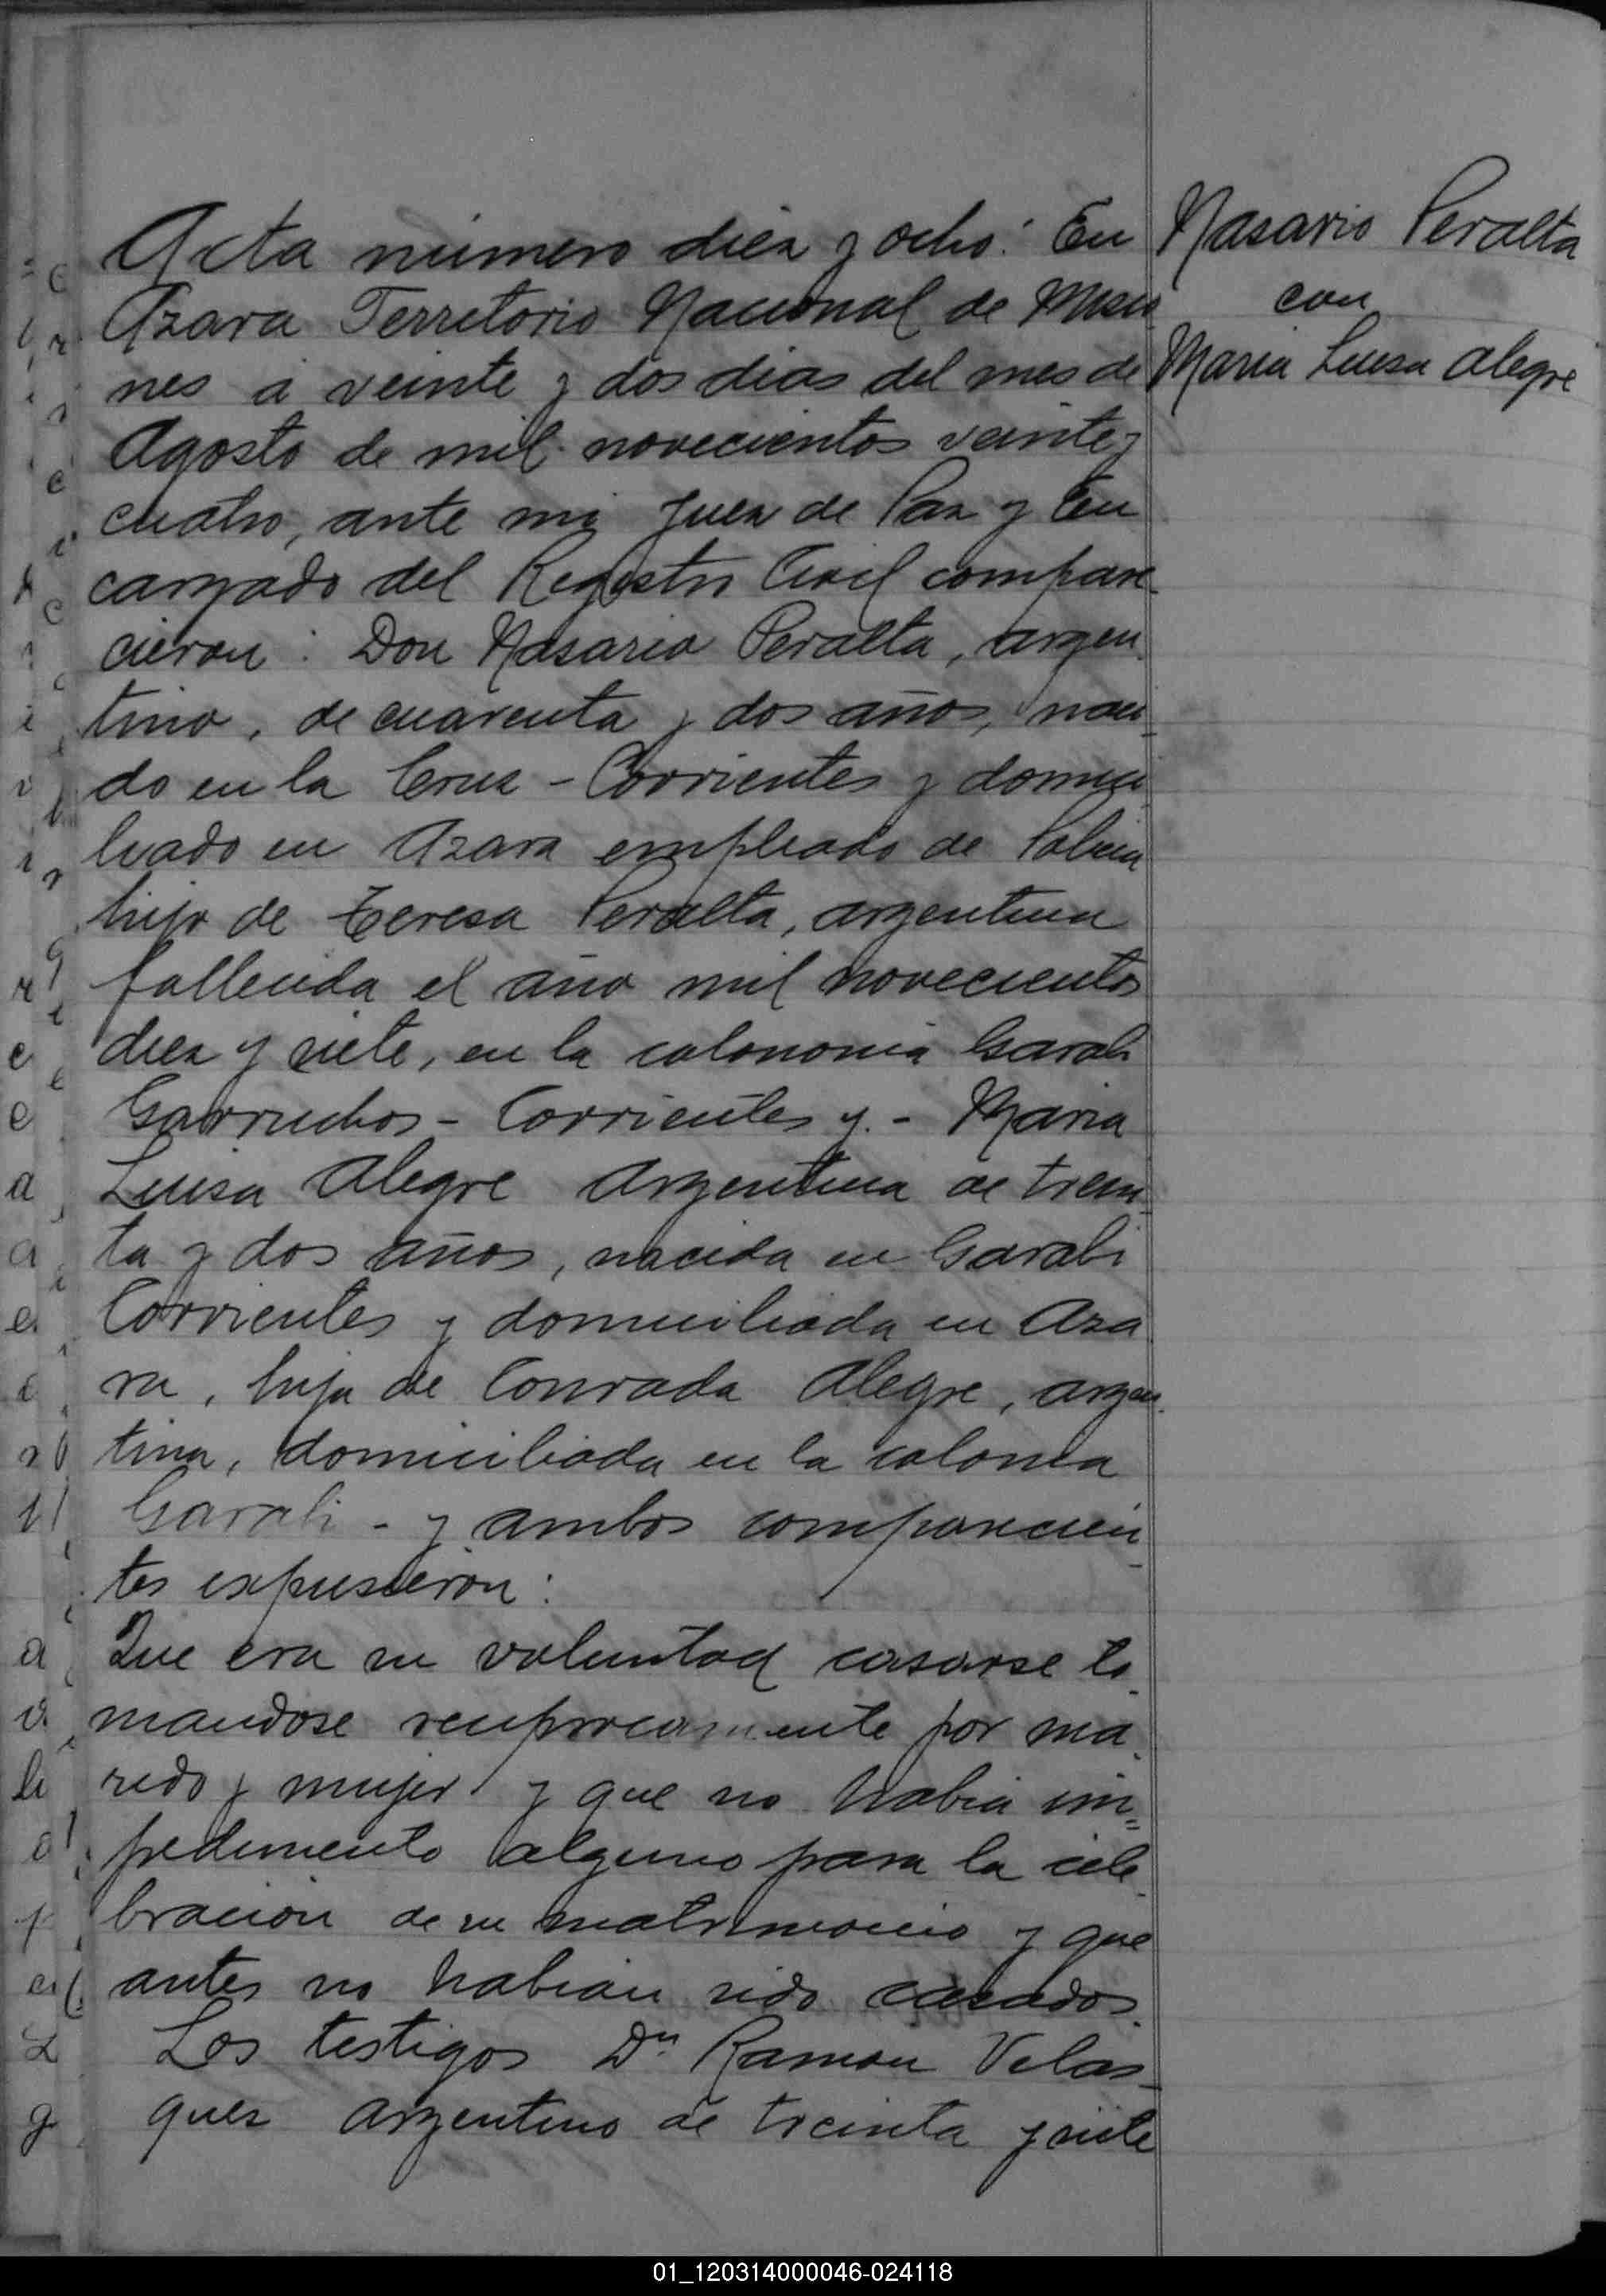 Acta número diez y ocho: En
Azara Territorio Nacional de Misio
nes á veinte y dos dias del mes de
Agosto de mil novecientos veinte y
cuatro, ante mi Juez de Paz y En
cargado del Registro Civil compare
cieron: Don Nasario Peralta, argen
tino, de cuarenta y dos años, naci
do en la Cruz - Corrientes y domici
liado en Azara empleado de Policia
hijo de Teresa Peralta, argentina
fallecida el año mil novecientos
diez y siete, en la colononia Garabi
Garruchos - Corrientes y. - Maria
Luisa Alegre Argentina de trein
ta y dos años, nacida en Garabi
Corrientes y domiciliada en Aza
ra, hija de Conrada Alegre, argen
tina, domiciliada en la colonia
Garabi - y ambos comparecien
tes expusieron:
Que era su voluntad casarse to
mandose reciprocamente por ma
rido y mujer y que no habia im=
pedimento alguno para la cele
bración de su matrimonio y que
antes no habian sido casados.
Los testigos Dn Ramon Velas
quez argentino de treinta y siete
Nasario Peralta
con
Maria Luisa Alegre
01_120314000046-024118